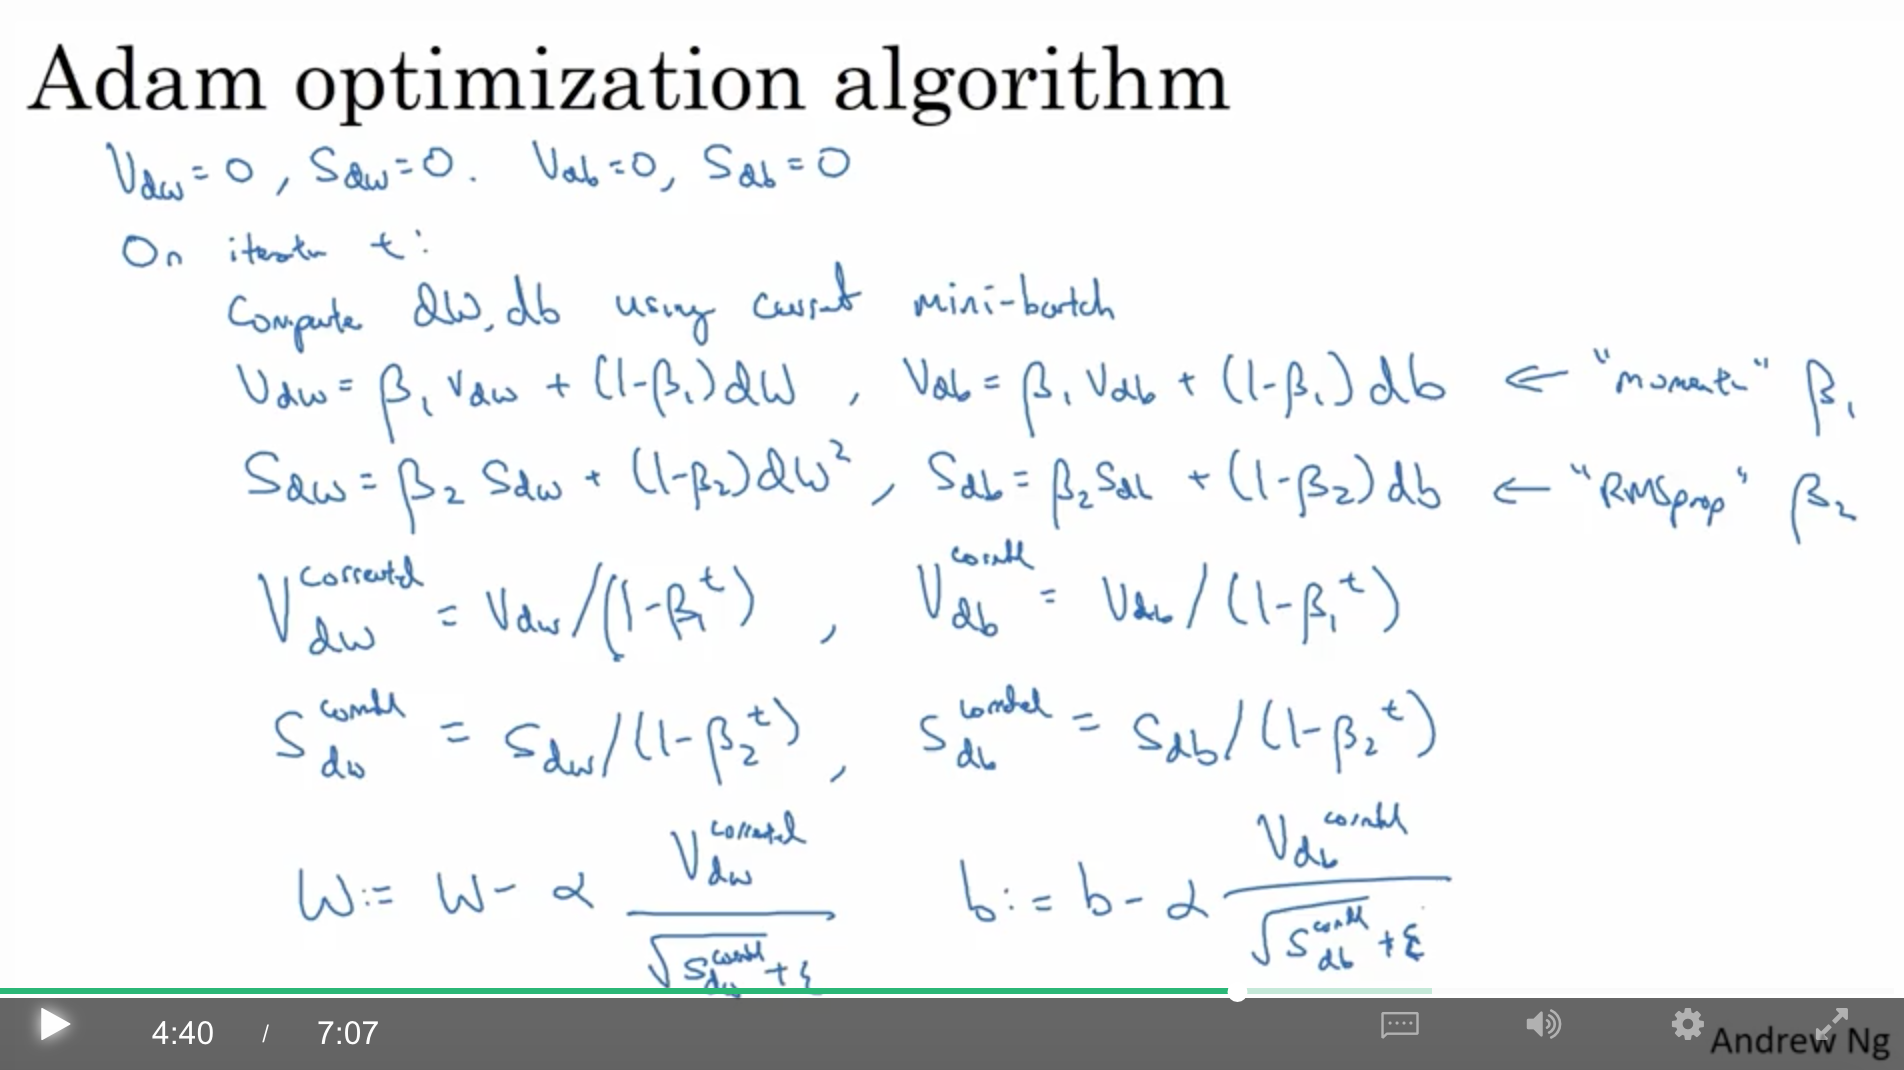 Adam optimization algorithm
V_dw = 0, S_dw = 0. V_db = 0, S_db = 0
On iteratn t:
Compute dW, db using current mini-batch
V_dw = β₁ V_dw + (1-β₁) dW, V_db = β₁ V_db + (1-β₁) db ← "moment" β₁
S_dw = β₂ S_dw + (1-β₂) dW², S_db = β₂ S_db + (1-β₂) db ← "RMSprop" β₂
V_dw^corrected = V_dw / (1-β₁^t), V_db^corrected = V_db / (1-β₁^t)
S_dw^corrected = S_dw / (1-β₂^t), S_db^corrected = S_db / (1-β₂^t)
W := W - α V_dw^corrected / (√S_dw^corrected + ε) b := b - α V_db^corrected / (√S_db^corrected + ε)
4:40 / 7:07
Andrew Ng